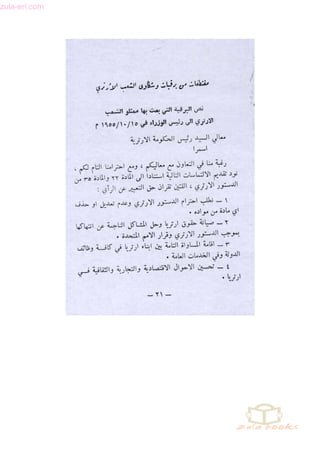 zula-eri.com
مقتطفات من برقيات وشكاوى الشعب الارتري
نص البرقية التي بعث بها ممثلو الشعب
الارتري الى رئيس الوزراء في ١٩٥٥/١٠/١٥ م
معالي السيد رئيس الحكومة الارترية
اسمرا
رغبة منا في التعاون مع معاليكم ، ومع احترامنا التام لكم ،
نود تقديم الالتماسات التالية استنادا الى المادة ٢٢ والمادة ٣٥ من
الدستور الارتري ، اللتين تقران حق التعبير عن الرأي :
١ ــ نطلب احترام الدستور الارتري وعدم تعديل او حذف
اي مادة من مواده ٠
٢ ــ صيانة حقوق ارتريا وحل المشاكل الناجمة عن انتهاكها
بموجب الدستور الارتري وقرار الامم المتحدة ٠
٣ ــ اقامة المساواة التامة بين ابناء ارتريا في كافة وظائف
الدولة وفي الخدمات العامة ٠
٤ ــ تحسين الاحوال الاقتصادية والتجارية والثقافية في
ارتريا ٠
ــ ٢١ ــ
zula books